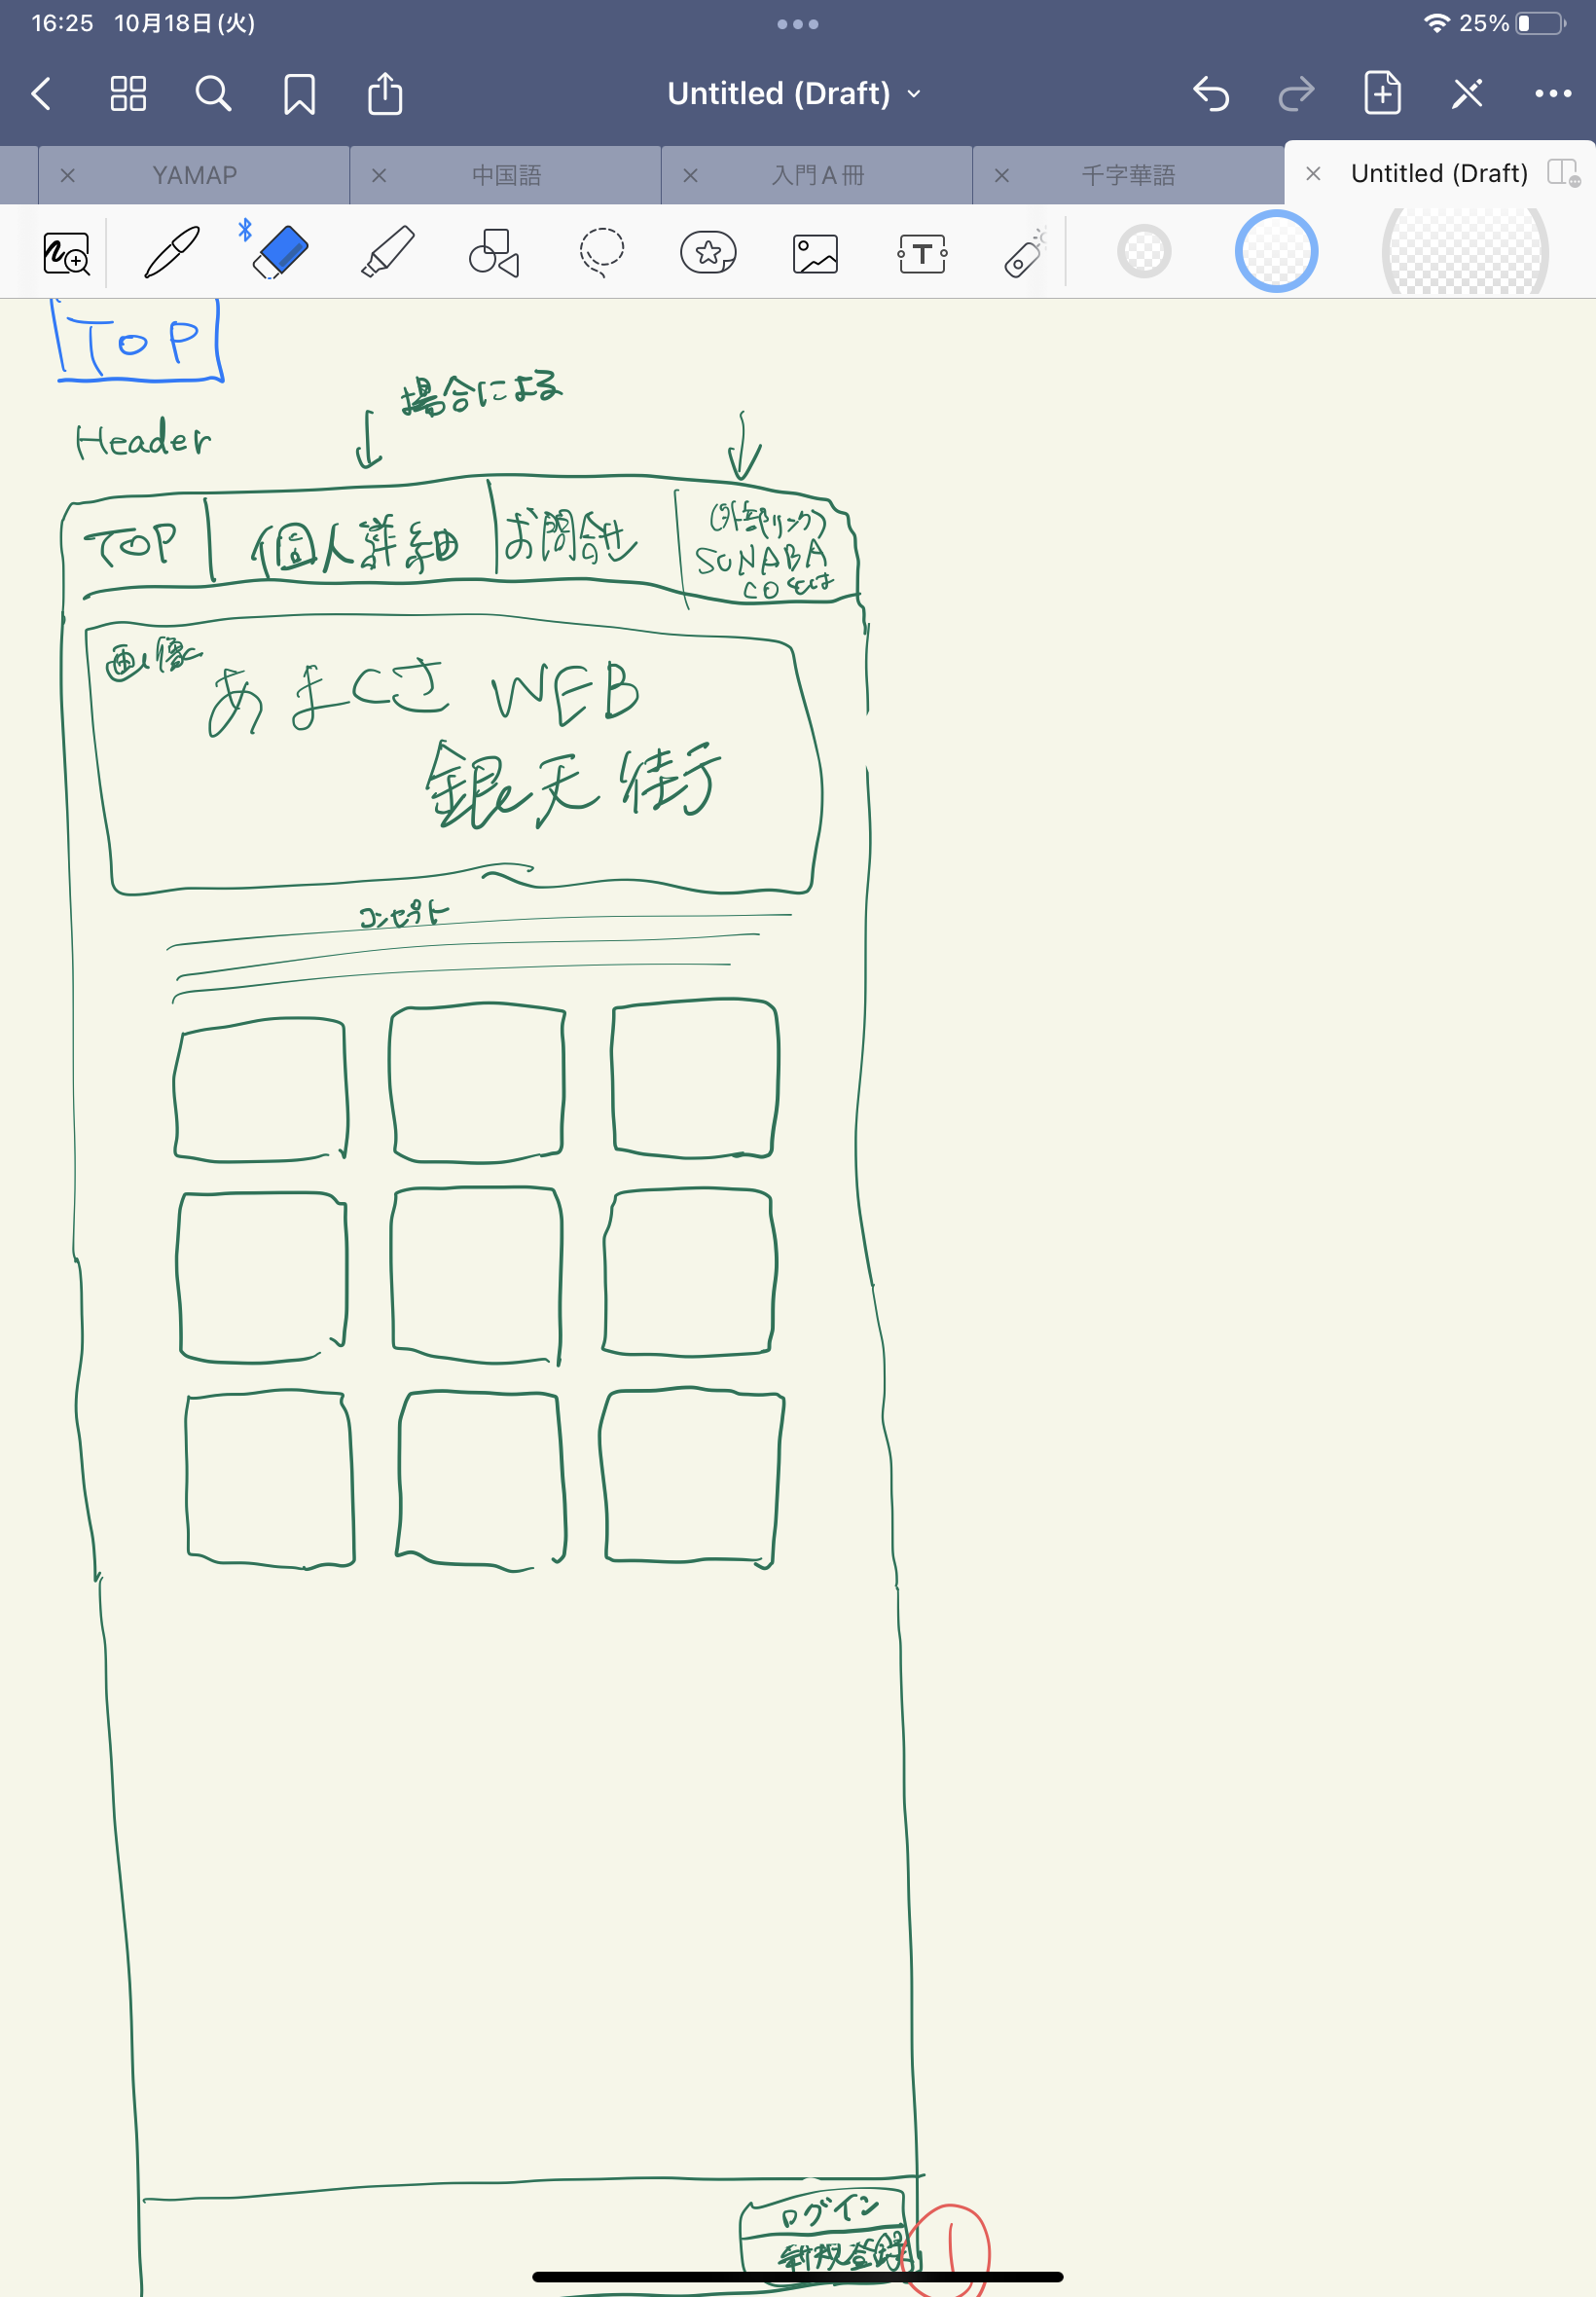 16:25 10月18日(火)
25%
Untitled (Draft)
YAMAP
中国語
入門A冊
千字華語
Untitled (Draft)
T
TOP
場合による
Header
TOP
個人詳細
お問合せ
(外部リンク)
SUNABA
CO
画像
あまくさ WEB
銀天街
コンセプト
ログイン
新規登録
1